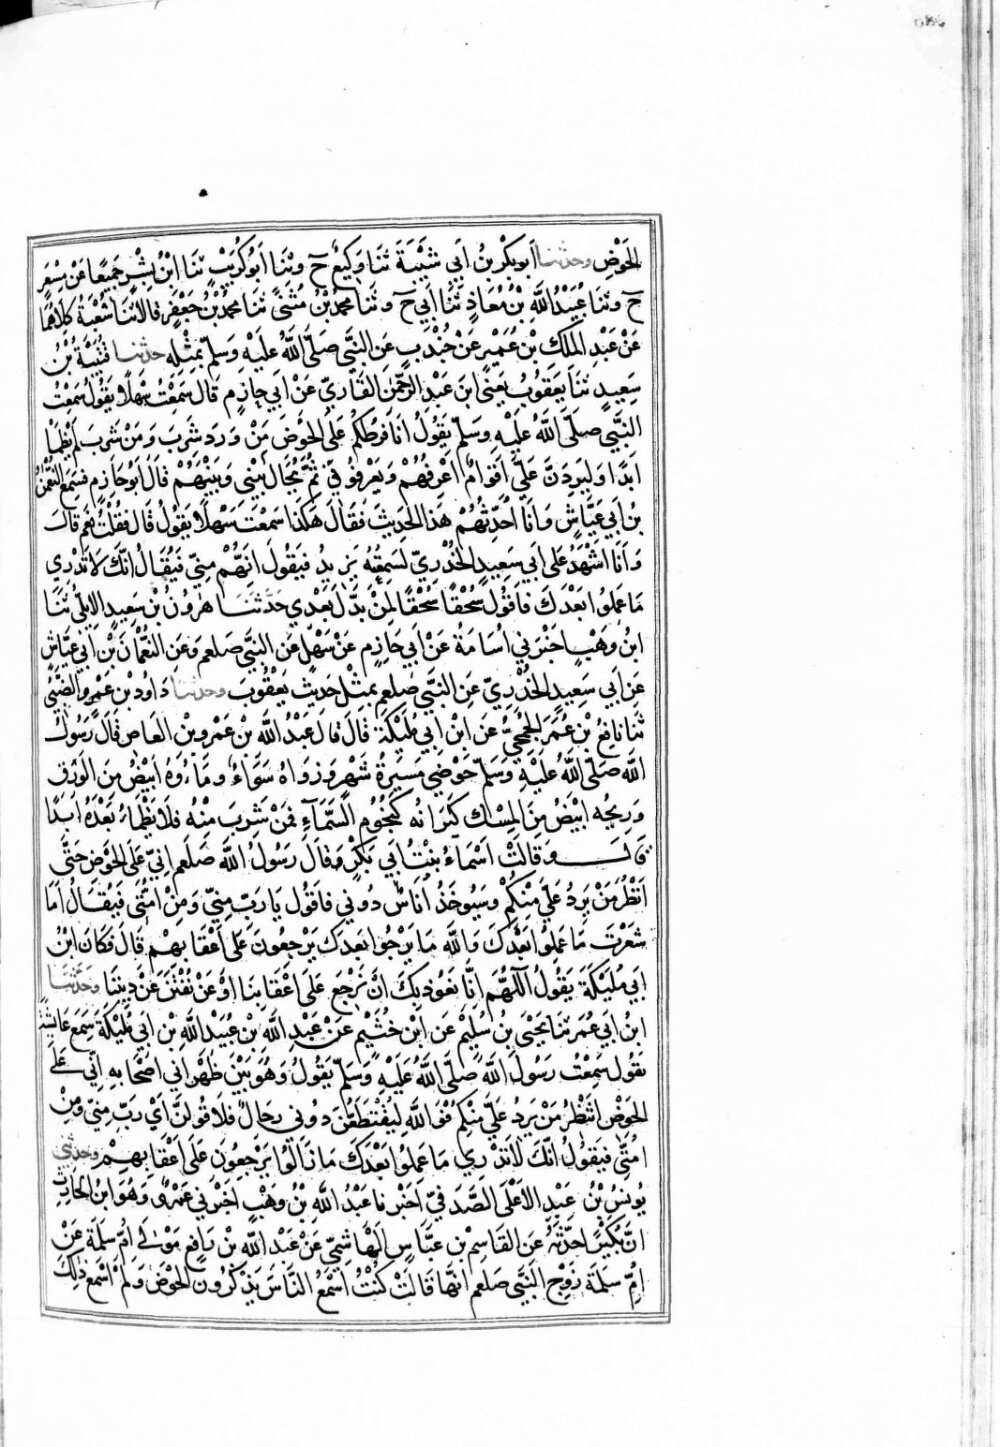 الحَوْضِ وحدثنا اَبوبَكْرِ بْنُ اَبِي شَيْبَةَ ثَنَا وَكِيعٌ ح وثَنَا اَبُوكُرَيْبٍ ثنَا ابْنُ بِشْرٍ جَمِيعًا عَنْ مِسْعَرٍ
ح وثنَا عُبَيْدُ اللَّهِ بْنُ مُعَاذٍ ثَنَا اَبِي ح وثَنَا محمدُ بْنُ مُثَنًّى ثنَا محمدُ بْنُ جَعْفَرٍ قالا ثنَا شُعْبَةُ كِلَاهُمَا
عَنْ عَبدِ الملَكِ بْنِ عُمَيْرٍ عَنْ جُنْدَبٍ عَنِ النَّبِّي صَلَّى اللَّهُ عَلَيْهِ وَسَلَّم بمِثْلِهِ حدثنا قُتَيْبَةُ بْنُ
سَعِيدٍ ثنَا يَعقُوبُ يَعْني ابنَ عَبْدِ الرَّحْمنِ القَارِيّ عَنْ اَبِي حازِمٍ قالَ سَمِعْتُ سَهْلًا يَقُولُ سَمِعْتُ
النَّبِّي صَلَّى اللَّهُ عَلَيْهِ وَسَلَّم يَقُولُ اَنَا فَرَطُكُمْ عَلَى الحَوْضِ مَنْ وَرَدَ شَرِبَ وَمَنْ شَرِبَ لَمْ يَظْمَأْ
اَبَدًا وَلَيَرِدَنَّ عَلَيَّ اَقْوَامٌ اَعْرِفُهُمْ وَيَعْرِفُونِي ثُمَّ يُحَالُ بَيْنِي وَبَيْنَهُمْ قالَ اَبُو حَازِمٍ فسَمِعَ النُّعْمٰنُ
بنُ اَبِي عَيَّاشٍ وَاَنَا اُحَدِّثُهُمْ هَذا الحَدِيثَ فَقَالَ هَكَذا سَمِعْتَ سَهْلًا يَقُولُ قَالَ فَقُلْتُ نَعَمْ قالَ
وَاَنَا اَشْهَدُ عَلى اَبي سَعِيدٍ الخُدْرِيّ لَسَمِعْتُهُ يَزِيدُ فَيَقُولُ اِنَّهُمْ مِنِّي فَيُقَالُ اِنَّكَ لَا تَدْرِي
مَا عَمِلُوا بَعْدَكَ فاَقُولُ سُحْقًا سُحْقًا لِمَنْ بَدَّلَ بَعْدِي حَدَّثَنَا هٰرُونُ بنُ سَعِيدٍ الاَيلِيُّ ثَنَا
ابْنُ وَهْبٍ اخبَرَنِي اُسَامَةُ عَنْ اَبِي حَازِمٍ عَنْ سَهْلٍ عَنِ النبَّي صلعم وَعَنِ النُّعْمَانَ بْنِ اَبِي عَيَّاش
عَنْ اَبي سَعِيدٍ الخُدْرِيّ عَنِ النبَّي صَلعم بمثْلِ حَدِيثِ يَعْقُوبَ وحدثنا دَاودُ بْنُ عَمْرٍو الضَّبِّي
ثَنَا نَافِعُ بْنُ عُمَرَ الجُمَحِيُّ عَنِ ابْنِ اَبِي مُلَيْكَةَ قالَ قالَ عَبْدُ اللَّهِ بْنُ عَمْرِو بْنِ العَاصِ قَالَ رَسُولُ
اللَّهِ صَلَّى اللَّهُ عَلَيْهِ وَسَلَّم حَوْضِي مَسِيرَةُ شَهْرٍ وَزَوَايَاهُ سَوَاءٌ وَمَاءُوهُ اَبْيَضُ مِنَ الْوَرِقِ
وَرِيحُهُ اَبْيَضُ مِنَ المِسْكِ كَيزَانُهُ كَنُجُومِ السَّمَآءِ فَمَنْ شَرِبَ مِنْهُ فلَا يَظْمَاءُ بَعْدَهُ اَبَدًا
قَالَ وَقالَتْ اَسْمَاءُ بِنْتُ اَبي بَكْرٍ وَقالَ رَسُولُ اللَّه صَلعم اِنِّي عَلَى الحَوْضِ حَتَّى
اَنْظُرَ مَنْ يَرِدُ عَلَيَّ مِنْكُمْ وَسَيُوخَذُ اُنَاسٌ دُونِي فاَقُولُ يَا رَبِّ مِنِّي وَمِنْ اُمَّتِي فَيُقَالُ اَمَا
شَعَرْتَ مَا عَمِلُوا بَعْدَكَ وَاللَّهِ مَا بَرِحُوا بَعدَكَ يَرْجِعُونَ عَلَى اَعْقَابِهِمْ قالَ فَكَانَ ابْنُ
اَبِي مُلَيْكَةَ يَقُولُ اللّٰهُمَّ اِنَّا نَعُوذ بِكَ اَنْ نَرْجِعَ عَلَى اَعْقَابِنَا اَوْ عَنْ نُفْتَنَ عَنْ دِيننَا وحَدَّثنَا
ابنُ ابِي عُمَر ثنَا يَحْيَى بنُ سُلَيْمٍ عَنِ ابْنِ خُثَيْمٍ عَنْ عَبْدِ اللَّهِ بْنِ عُبَيْدِ اللَّهِ بْنِ اَبي مُلَيْكَةَ سَمِعَ عَايشَةَ
تقُولُ سَمِعْتُ رَسُولَ اللَّهِ صَلَّى اللَّهُ عَلَيْهِ وَسَلَّم يَقُولُ وَهُوَ بَيْنَ ظَهْرَانَي اَصْحَابهِ اِنِّي عَلَى
الحَوْضِ اَنْتَظِرُ مَنْ يَرِدُ عَلَيَّ مِنْكُمْ فَوَ اللَّهِ لَيُقْتَطَعَنَّ دُونِي رِجَالٌ فَلَاَقُولَنَّ اَيْ رَبِّ مِنِّي وَمِنْ
اُمَّتِي فَيَقُولُ اِنَّكَ لَا تَدْرِي مَا عَمِلُوا بَعْدَكَ مَا زَالُوا يَرْجِعُونَ عَلَى اَعْقَابِهِمْ وحدثني
يُونسُ بْنُ عَبْدِ الاَعْلَى الصَّدَفيّ اَخْبَرنا عَبْدُ اللَّهِ بْنُ وَهْبٍ اَخبَرني عَمْرٌو وَهُوَ ابنُ الحَارِثِ
اَنَّ بُكَيْرًا حَدَّثَهُ عَنِ القَاسِمِ بْنِ عَبَّاسٍ الهَاشِمِيّ عَنْ عَبْدِ اللَّهِ بْنِ رَافِعٍ مَوْلَى اُمِّ سَلَمَةَ عَنْ
اُمِّ سَلَمَةَ زَوْجِ النَّبِّي صَلعم اَنَّهَا قَالَتْ كُنْتُ اَسْمَعُ النَّاسَ يَذكُرُونَ الحَوْضَ وَلَمْ اَسْمَعْ ذَلِكَ